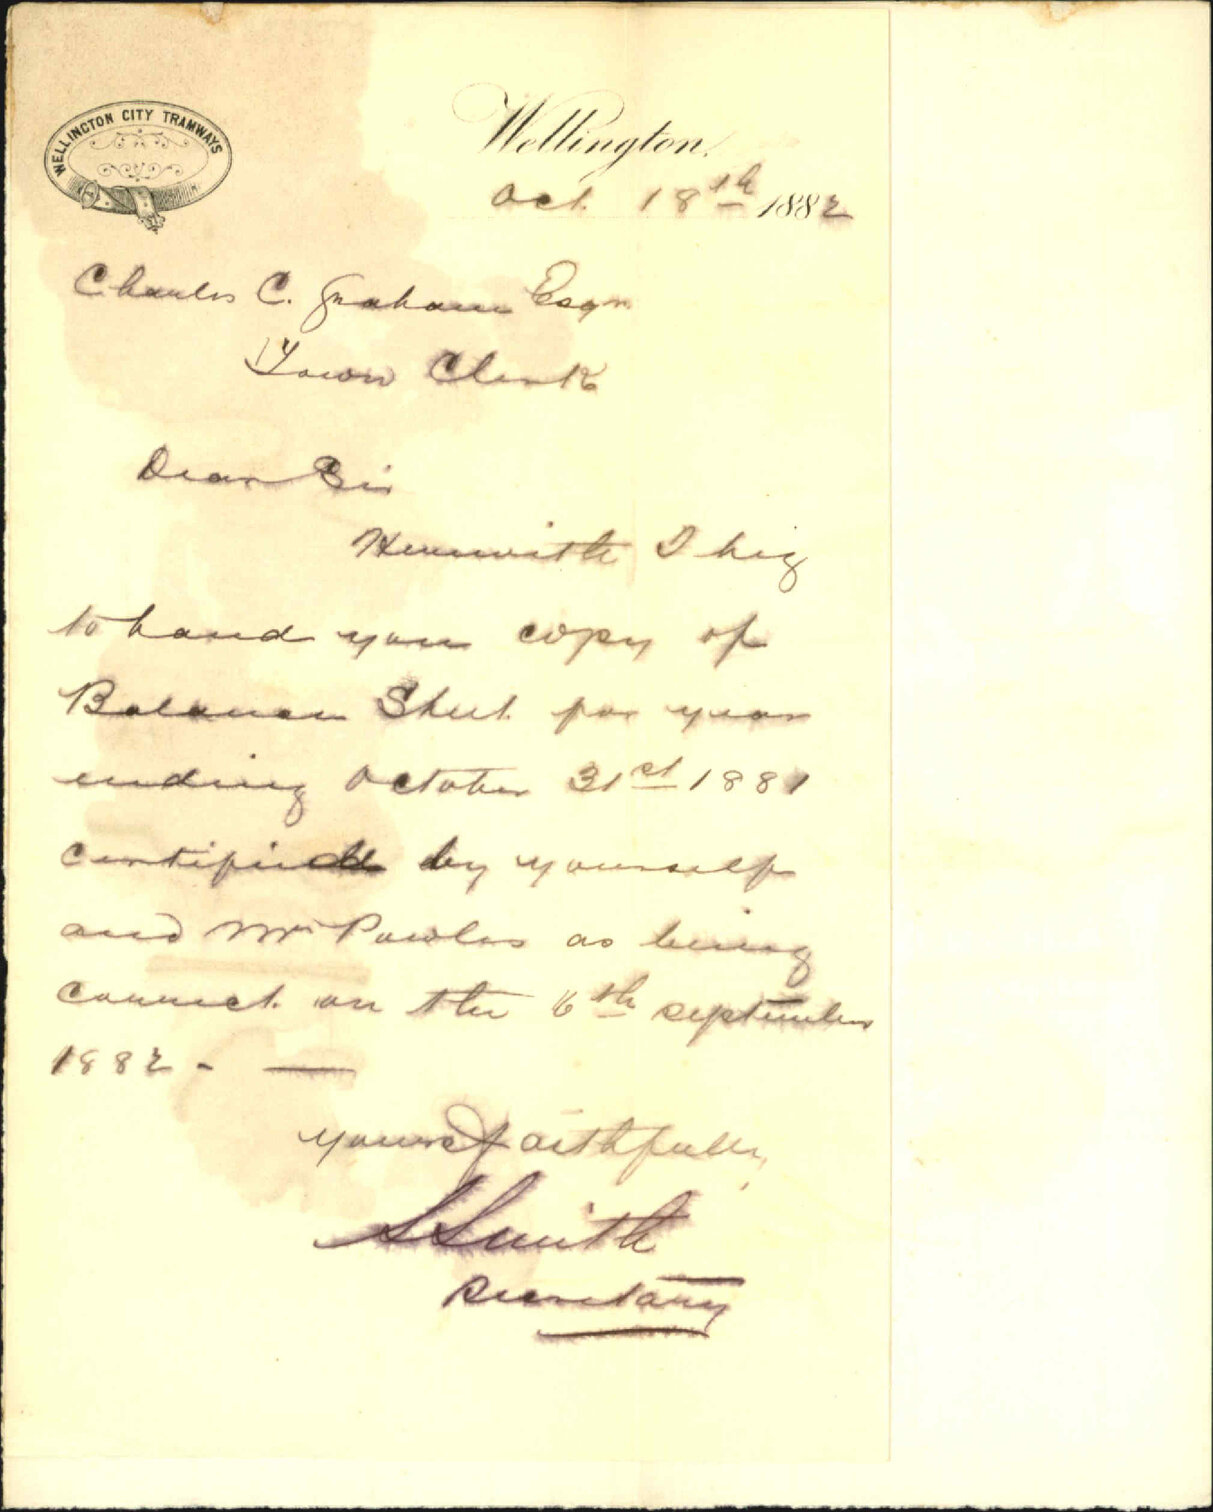 WELLINGTON CITY TRAMWAYS
Wellington,
Oct. 18th 1882
Charles C. Graham Esqr
Town Clerk
Dear Sir
Herewith I beg
to hand you copy of
Balance Sheet for year
ending October 31st 1881
certified by yourself
and Mr Powles as being
correct on the 6th September
1882 - —
Yours faithfully,
S Smith
Secretary